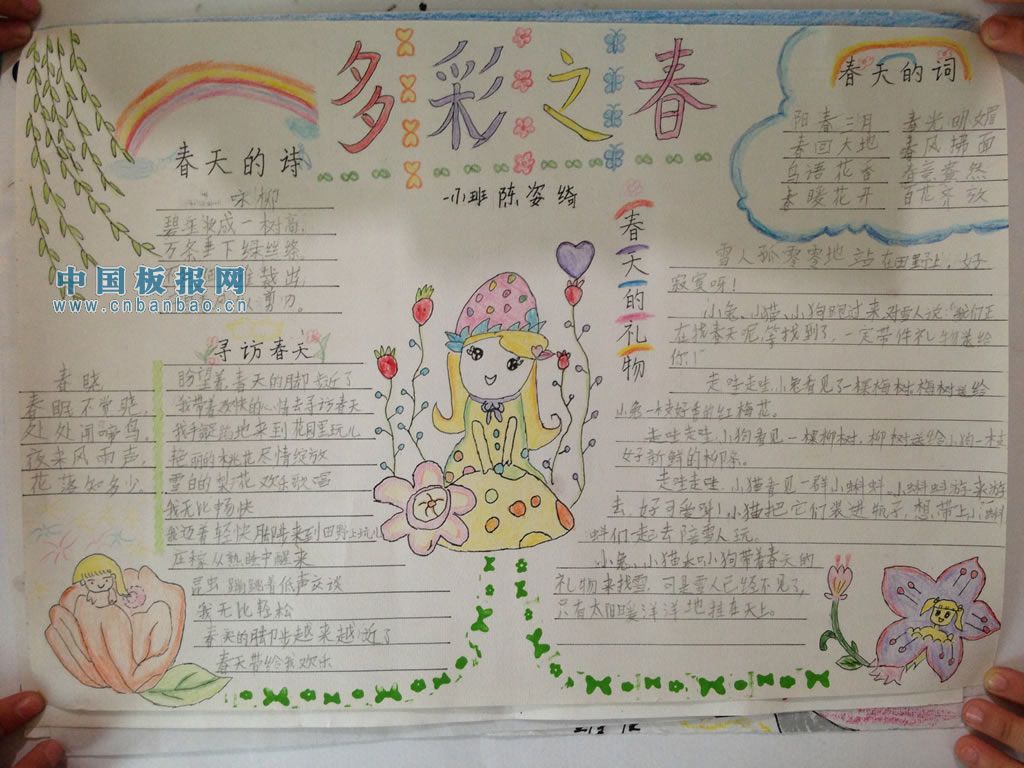 多彩之春
小班 陈姿绮
春天的诗
咏柳
碧玉妆成一树高,
万条垂下绿丝绦,
裁出,
剪刀。
中国板报网
www.cnbanbao.cn
春晓
春眠不觉晓,
处处闻啼鸟,
夜来风雨声,
花落知多少,
寻访春天
盼望着,春天的脚步近了
我带着欢快的心情去寻访春天
我手舞足蹈地来到花园里玩儿
艳丽的桃花尽情绽放
雪白的梨花欢乐歌唱
我无比畅快
我迈着轻快脚步来到田野上玩儿
庄稼从熟睡中醒来
昆虫蹦跳着低声交谈
我无比轻松
春天的脚步越来越近了
春天带给我欢乐
春天的词
阳春三月 春光明媚
春回大地 春风拂面
鸟语花香 春意盎然
春暖花开 百花齐放
春天的礼物
雪人孤零零地站在田野上,好
寂寞呀!
小兔、小猫、小狗跑过来对雪人说:"我们正
在找春天呢,等找到了,一定带件礼物送给
你!"
走哇走哇,小兔看见了一棵梅树,梅树送给
小兔一支好香的红梅花。
走哇走哇,小狗看见一棵柳树,柳树送给小狗一支
好新鲜的柳条。
走哇走哇,小猫看见一群小蝌蚪,小蝌蚪游来游
去,好可爱呀!小猫把它们装进瓶子,想带上小蝌
蚪们一起去陪雪人玩。
小兔、小猫和小狗带着春天的
礼物来找雪,可是雪人已经不见了,
只有太阳暖洋洋地挂在天上。